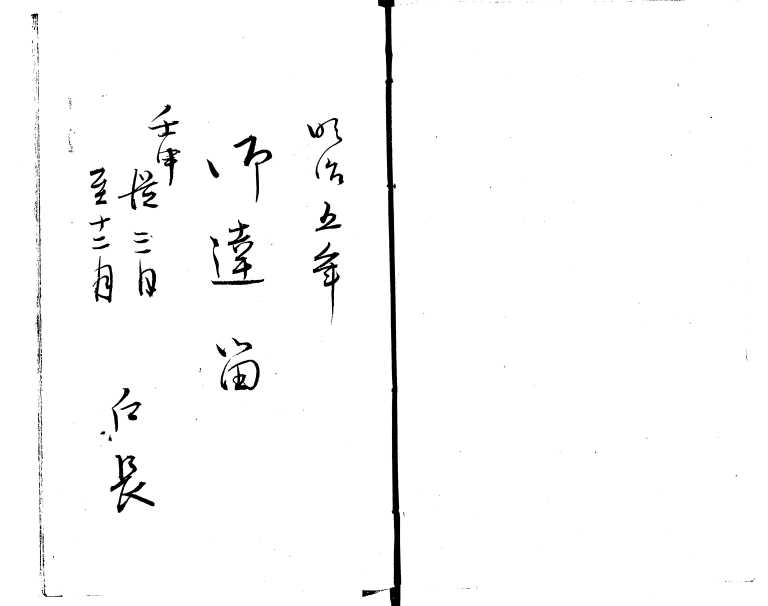 明治五年
御達留
壬申
従三月
至十二月
戸長